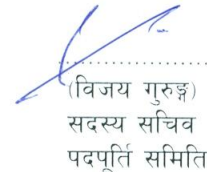 (विजय गुरुङ्ग)
सदस्य सचिव
पदपूर्ति समिति